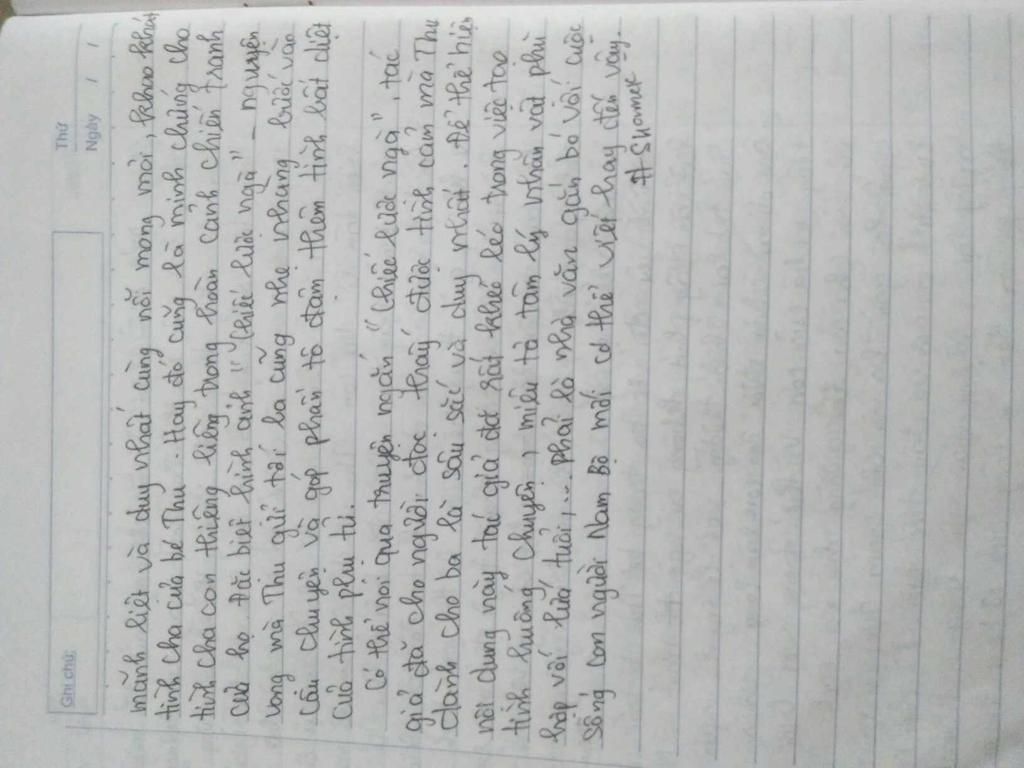 Ghi chú:
Thứ
Ngày / /
mãnh liệt và duy nhất cùng nỗi mong mỏi, khao khát
tình cha của bé Thu. Hay đó cũng là minh chứng cho
tình cha con thiêng liêng trong hoàn cảnh chiến tranh
của họ. Đặc biệt hình ảnh "Chiếc lược ngà" - nguyện
vọng mà Thu gửi tới ba cũng nhẹ nhàng bước vào
câu chuyện và góp phần tô đậm thêm tình bất diệt
của tình phụ tử.
Có thể nói qua truyện ngắn "Chiếc lược ngà", tác
giả đã cho người đọc thấy được tình cảm mà Thu
dành cho ba là sâu sắc và duy nhất. Để thể hiện
nội dung này tác giả đã rất khéo léo trong việc tạo
tình huống chuyện, miêu tả tâm lý nhân vật phù
hợp với lứa tuổi,... phải là nhà văn gắn bó với cuộc
sống con người Nam Bộ mới có thể viết hay đến vậy.